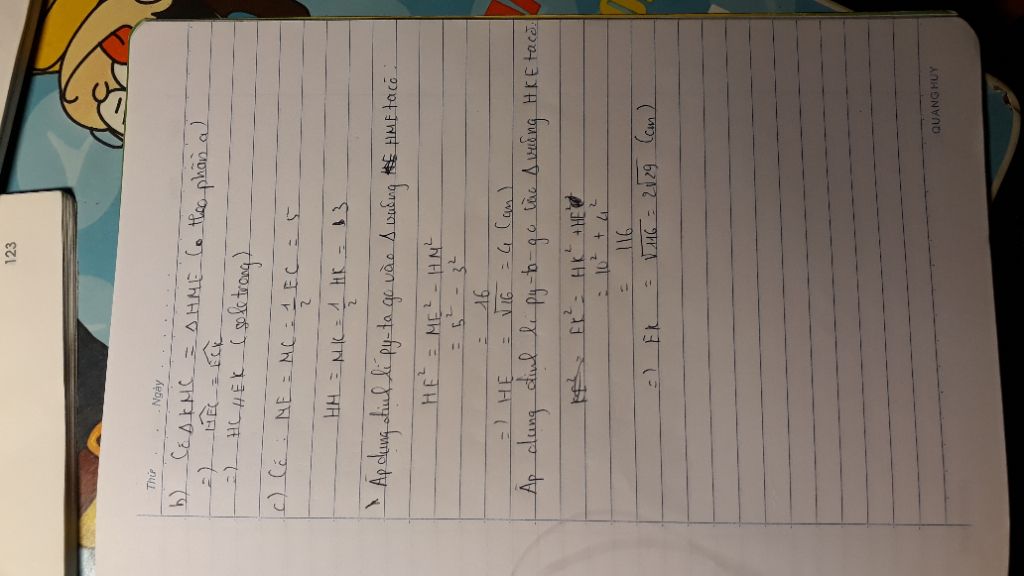 Thứ Ngày
b) Có Δ KMC = Δ HME (c theo phần a)
=) HEC = ECK
=) HC // EK (so le trong)
c) Có : ME = MC = 1/2 EC = 5
HM = MK = 1/2 HK = 3
Áp dụng định lí py-ta go vào Δ vuông HME ta có :
HE² = ME² - HM²
= 5² - 3²
= 16
=) HE = √16 = 4 (cm)
Áp dụng định lí py-ta-go vào Δ vuông HKE ta có:
EK² = HK² + HE²
= 10² + 4²
= 116
=) EK = √116 = 2√29 (cm)
QUANG HUY
123